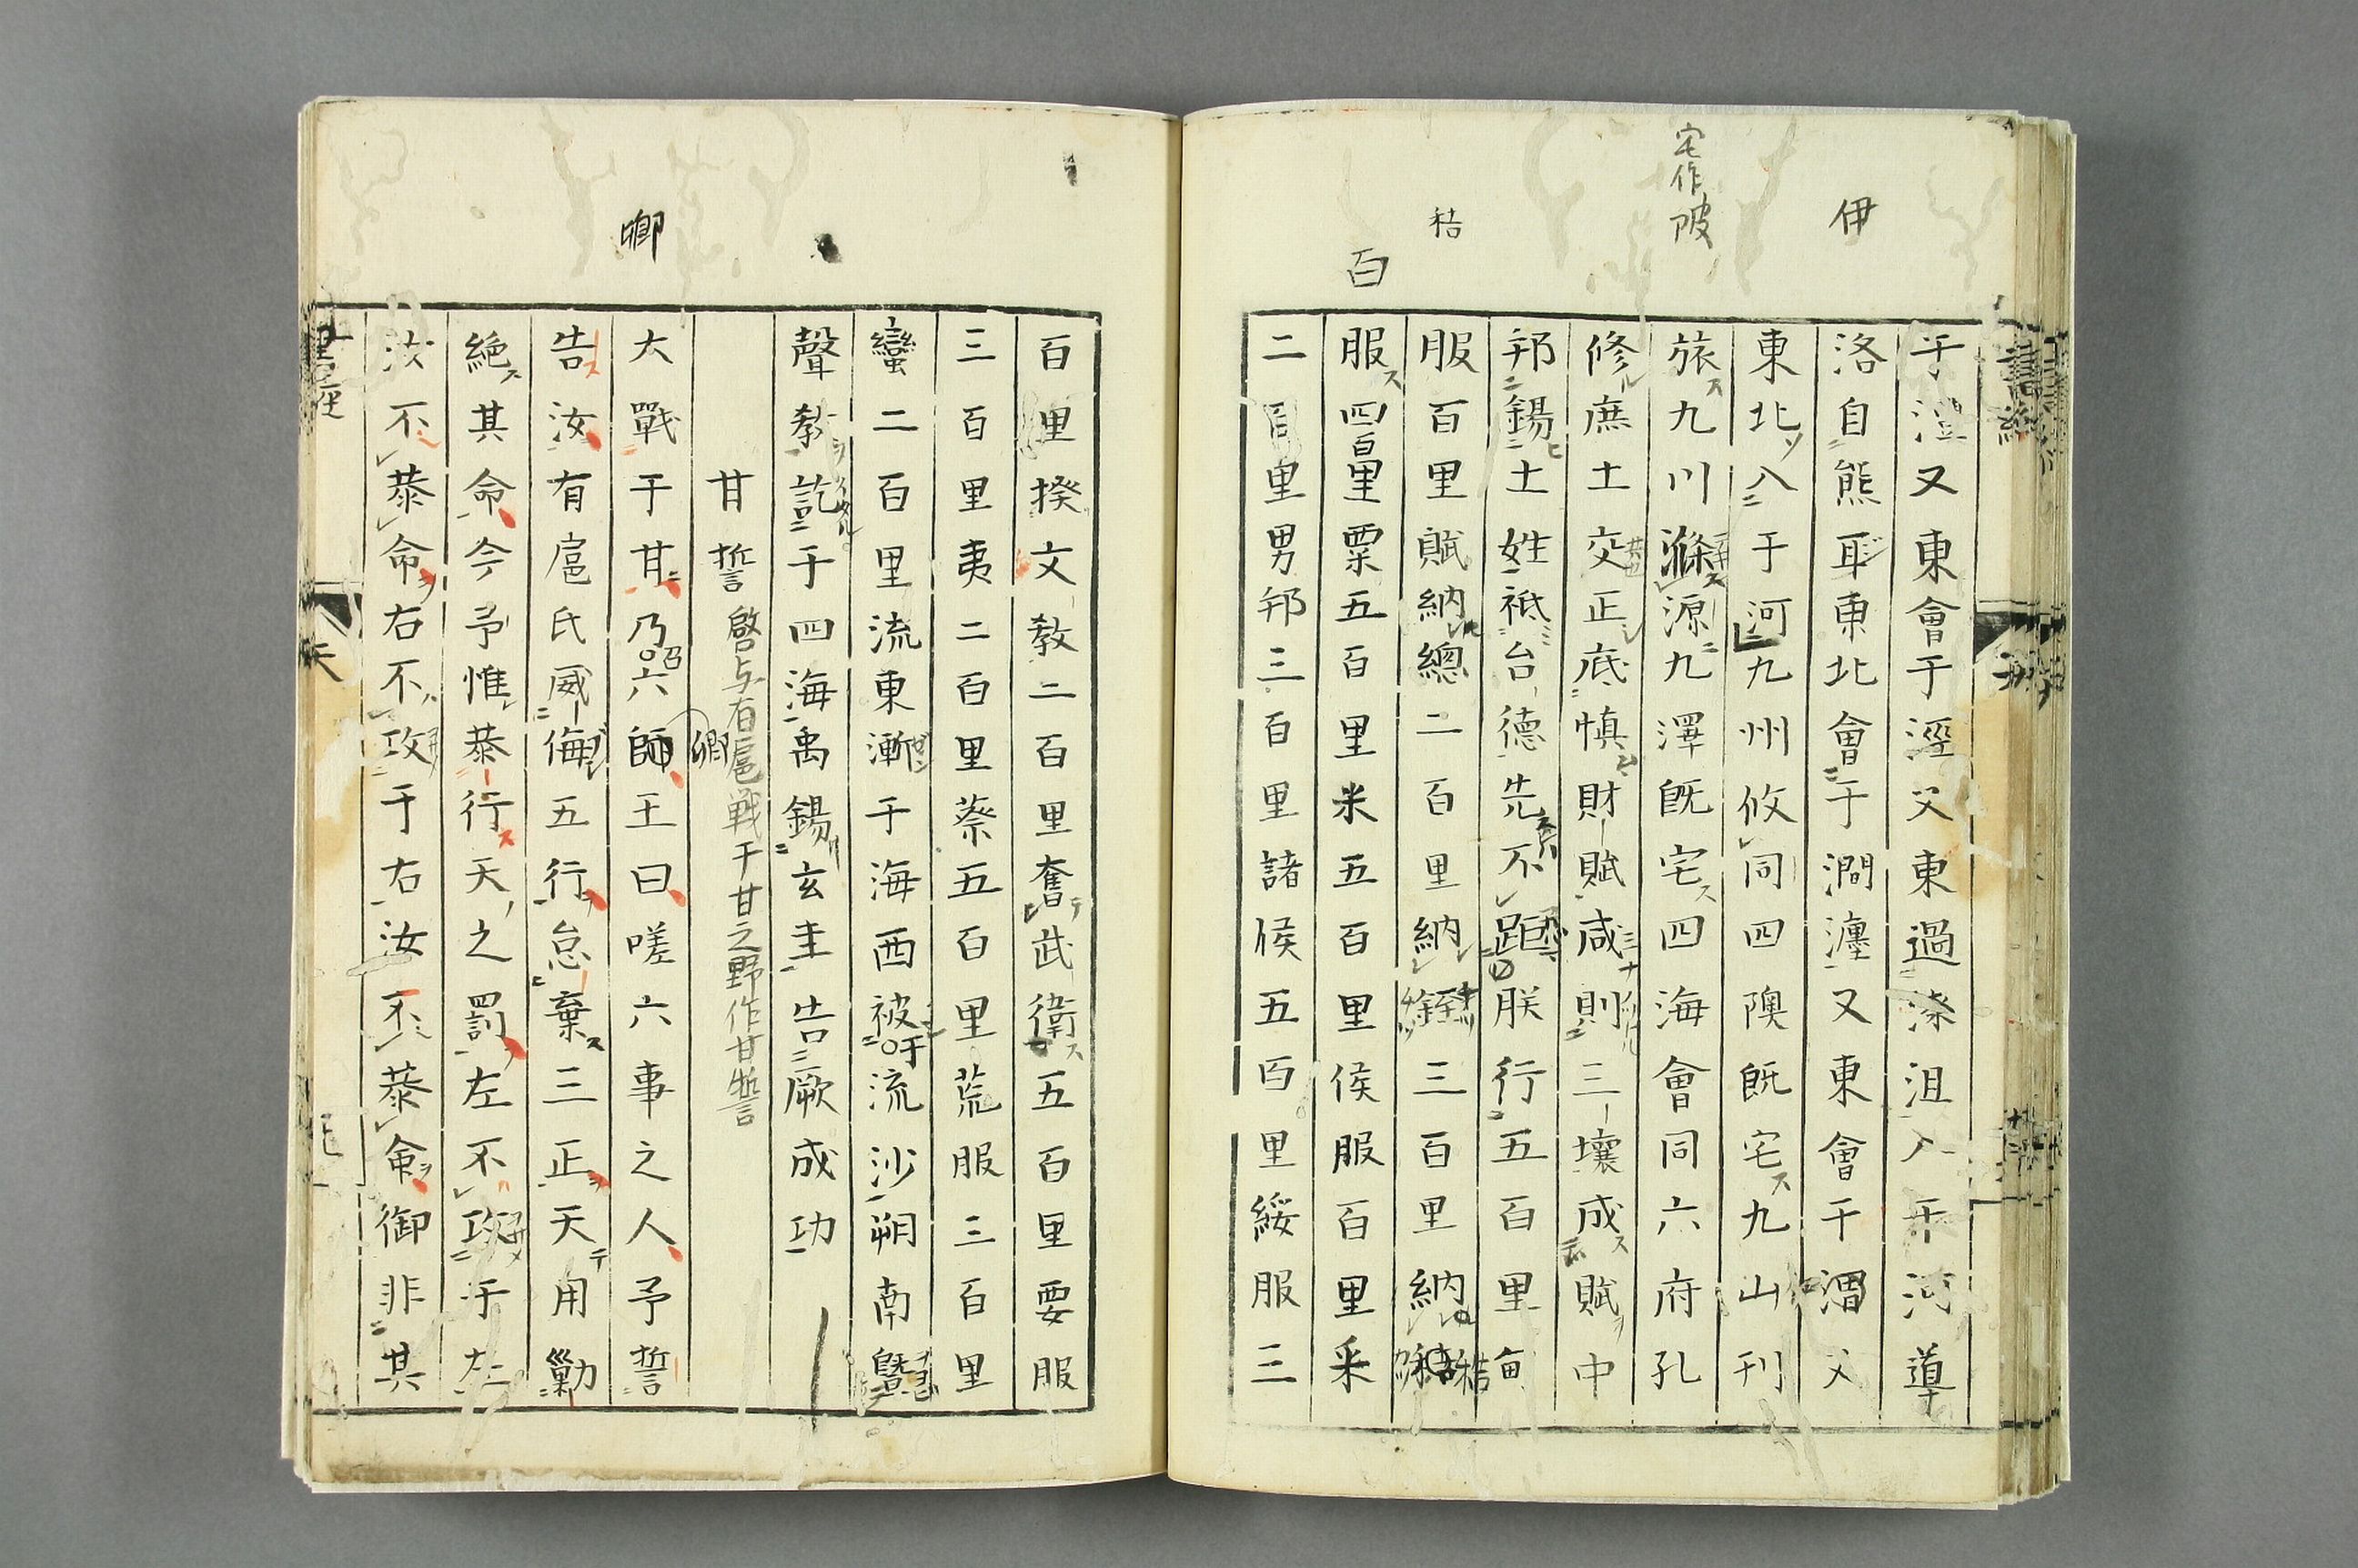 伊
宅作陂
秸
百
于澧又東會于涇又東過漆沮入于河導
洛自熊耳東北會于澗瀍又東會于渭又
東北入于河九州攸同四隩既宅九山刊
旅九川滌源九澤既宅四海會同六府孔
修庶土交正底慎財賦咸則三壤成賦中
邦錫土姓祗台德先不距朕行五百里甸
服百里賦納總二百里納銍三百里納秸
服四百里粟五百里米五百里侯服百里采
二百里男邦三百里諸侯五百里綏服三
百里揆文教二百里奮武衛五百里要服
三百里夷二百里蔡五百里荒服三百里
蠻二百里流東漸于海西被于流沙朔南曁
聲教訖于四海禹錫玄圭告厥成功
甘誓 啓与有扈戦于甘之野作甘誓
卿
大戰于甘乃召六師王曰嗟六事之人予誓
卿
告汝有扈氏威侮五行怠棄三正天用勦
絶其命今予惟恭行天之罰左不攻于左
汝不恭命右不攻于右汝不恭命御非其